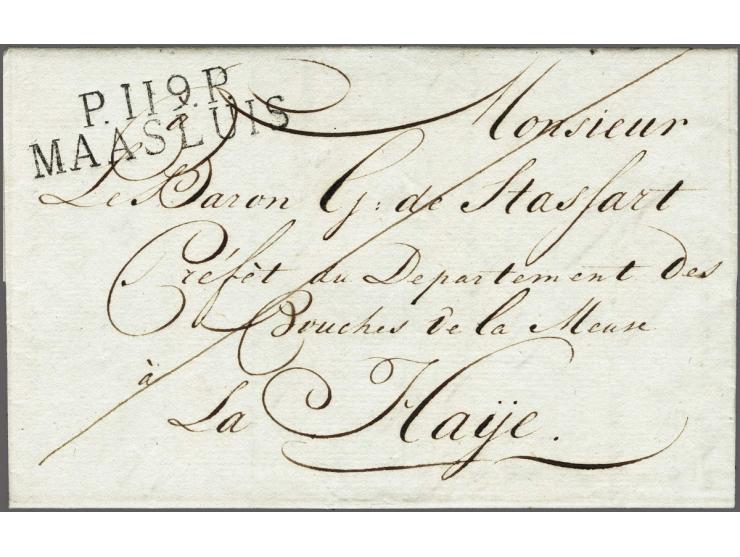 P.119.P.
MAASLUIS
Monsieur
Le Baron G: de Stassart
Préfèt du Departement des
Bouches de la Meuse
à
La Haÿe.